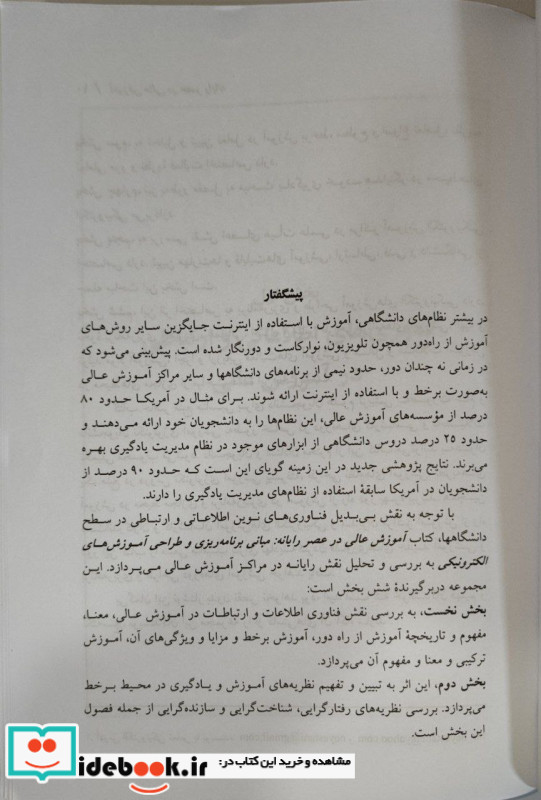 پیشگفتار
در بیشتر نظام‌های دانشگاهی، آموزش با استفاده از اینترنت جایگزین سایر روش‌های
آموزش از راه‌دور همچون تلویزیون، نوارکاست و دورنگار شده است. پیش‌بینی می‌شود که
در زمانی نه چندان دور، حدود نیمی از برنامه‌های دانشگاهها و سایر مراکز آموزش عالی
به‌صورت برخط و با استفاده از اینترنت ارائه شوند. برای مثال در آمریکا حدود ۸۰
درصد از مؤسسه‌های آموزش عالی، این نظام‌ها را به دانشجویان خود ارائه می‌دهند و
حدود ۲۵ درصد دروس دانشگاهی از ابزارهای موجود در نظام مدیریت یادگیری بهره
می‌برند. نتایج پژوهشی جدید در این زمینه گویای این است که حدود ۹۰ درصد از
دانشجویان در آمریکا سابقهٔ استفاده از نظام‌های مدیریت یادگیری را دارند.
با توجه به نقش بی‌بدیل فناوری‌های نوین اطلاعاتی و ارتباطی در سطح
دانشگاهها، کتاب آموزش عالی در عصر رایانه: مبانی برنامه‌ریزی و طراحی آموزش‌های
الکترونیکی به بررسی و تحلیل نقش رایانه در مراکز آموزش عالی می‌پردازد. این
مجموعه دربرگیرندهٔ شش بخش است:
بخش نخست، به بررسی نقش فناوری اطلاعات و ارتباطات در آموزش عالی، معنا،
مفهوم و تاریخچهٔ آموزش از راه دور، آموزش برخط و مزایا و ویژگی‌های آن، آموزش
ترکیبی و معنا و مفهوم آن می‌پردازد.
بخش دوم، این اثر به تبیین و تفهیم نظریه‌های آموزش و یادگیری در محیط برخط
می‌پردازد. بررسی نظریه‌های رفتارگرایی، شناخت‌گرایی و سازنده‌گرایی از جمله فصول
این بخش است.
مشاهده و خرید این کتاب در:
idebook.ir